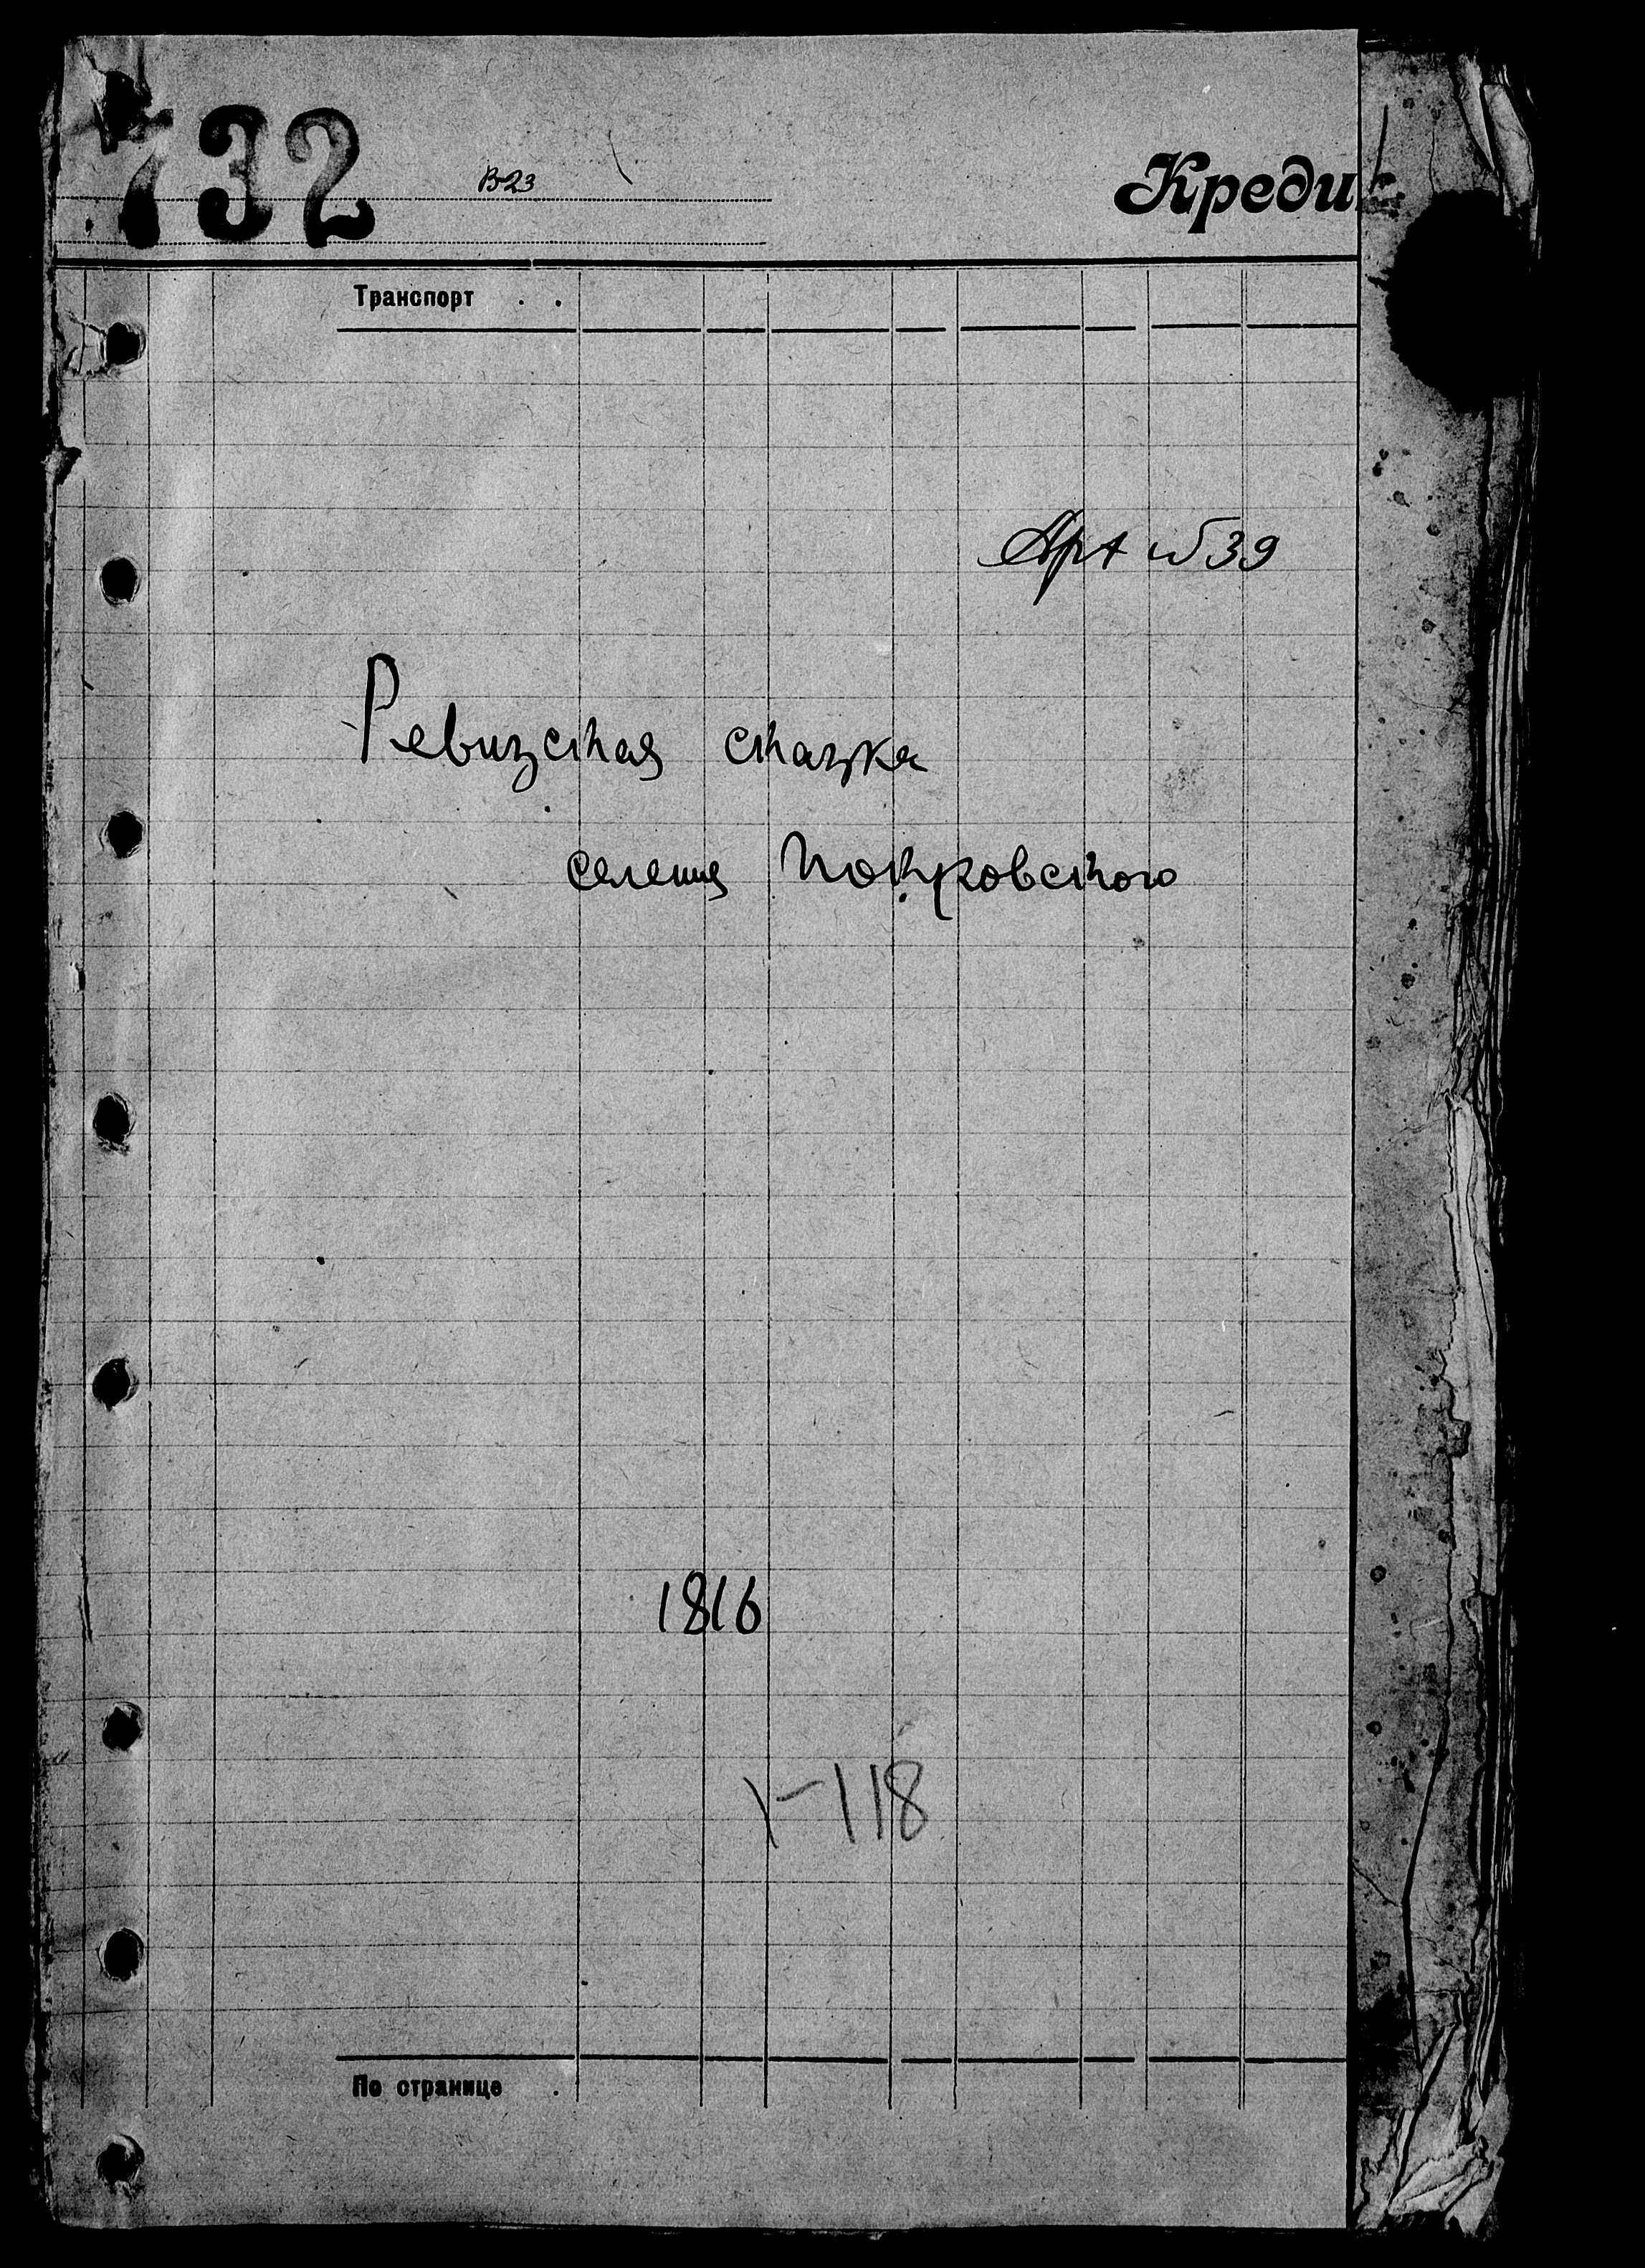 732
В23
Кредит
Транспорт . .
Арх №39
Ревизская сказка
селения Покровского
1816
1-118
По странице .